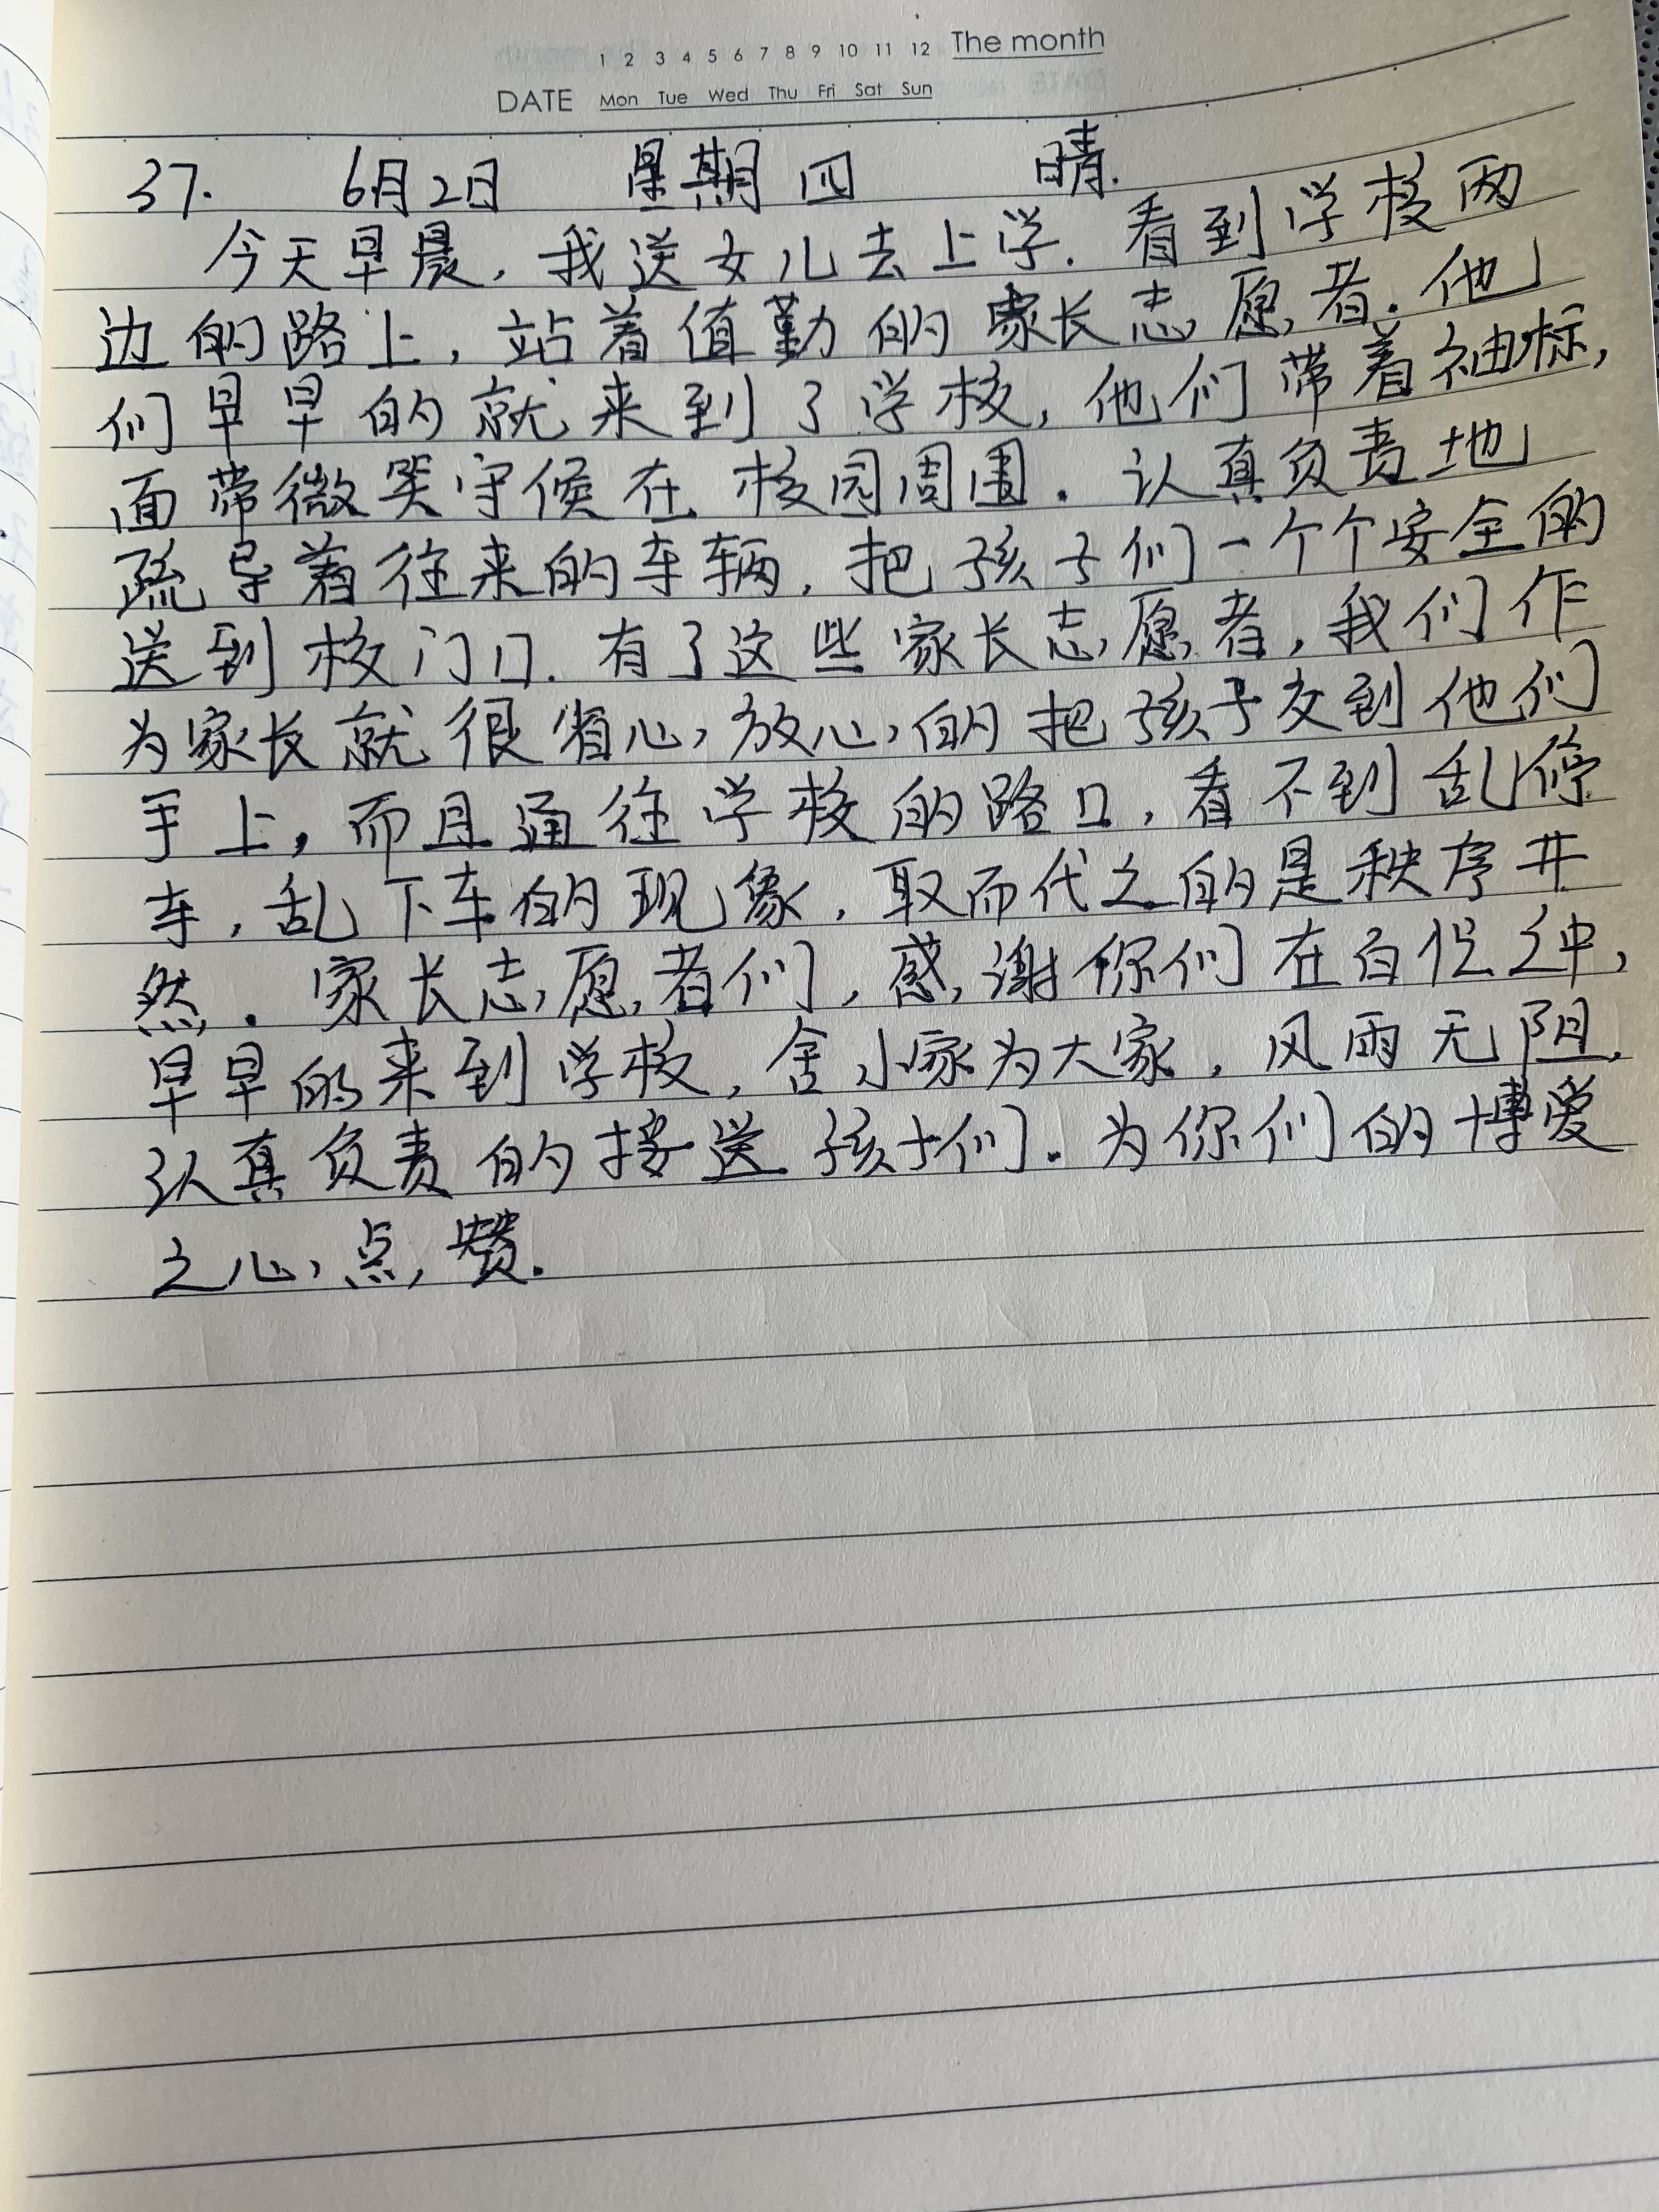 1 2 3 4 5 6 7 8 9 10 11 12 The month
DATE Mon Tue Wed Thu Fri Sat Sun
37. 6月2日 星期四 晴.
今天早晨,我送女儿去上学.看到学校两
边的路上,站着值勤的家长志愿者.他
们早早的就来到了学校,他们带着袖标,
面带微笑守候在校园周围.认真负责地
疏导着往来的车辆,把孩子们一个个安全的
送到校门口.有了这些家长志愿者,我们作
为家长就很省心,放心的把孩子交到他们
手上,而且通往学校的路口,看不到乱停
车,乱下车的现象,取而代之的是秩序井
然.家长志愿者们,感谢你们在百忙之中,
早早的来到学校,舍小家为大家,风雨无阻,
认真负责的接送孩子们.为你们的博爱
之心点赞.